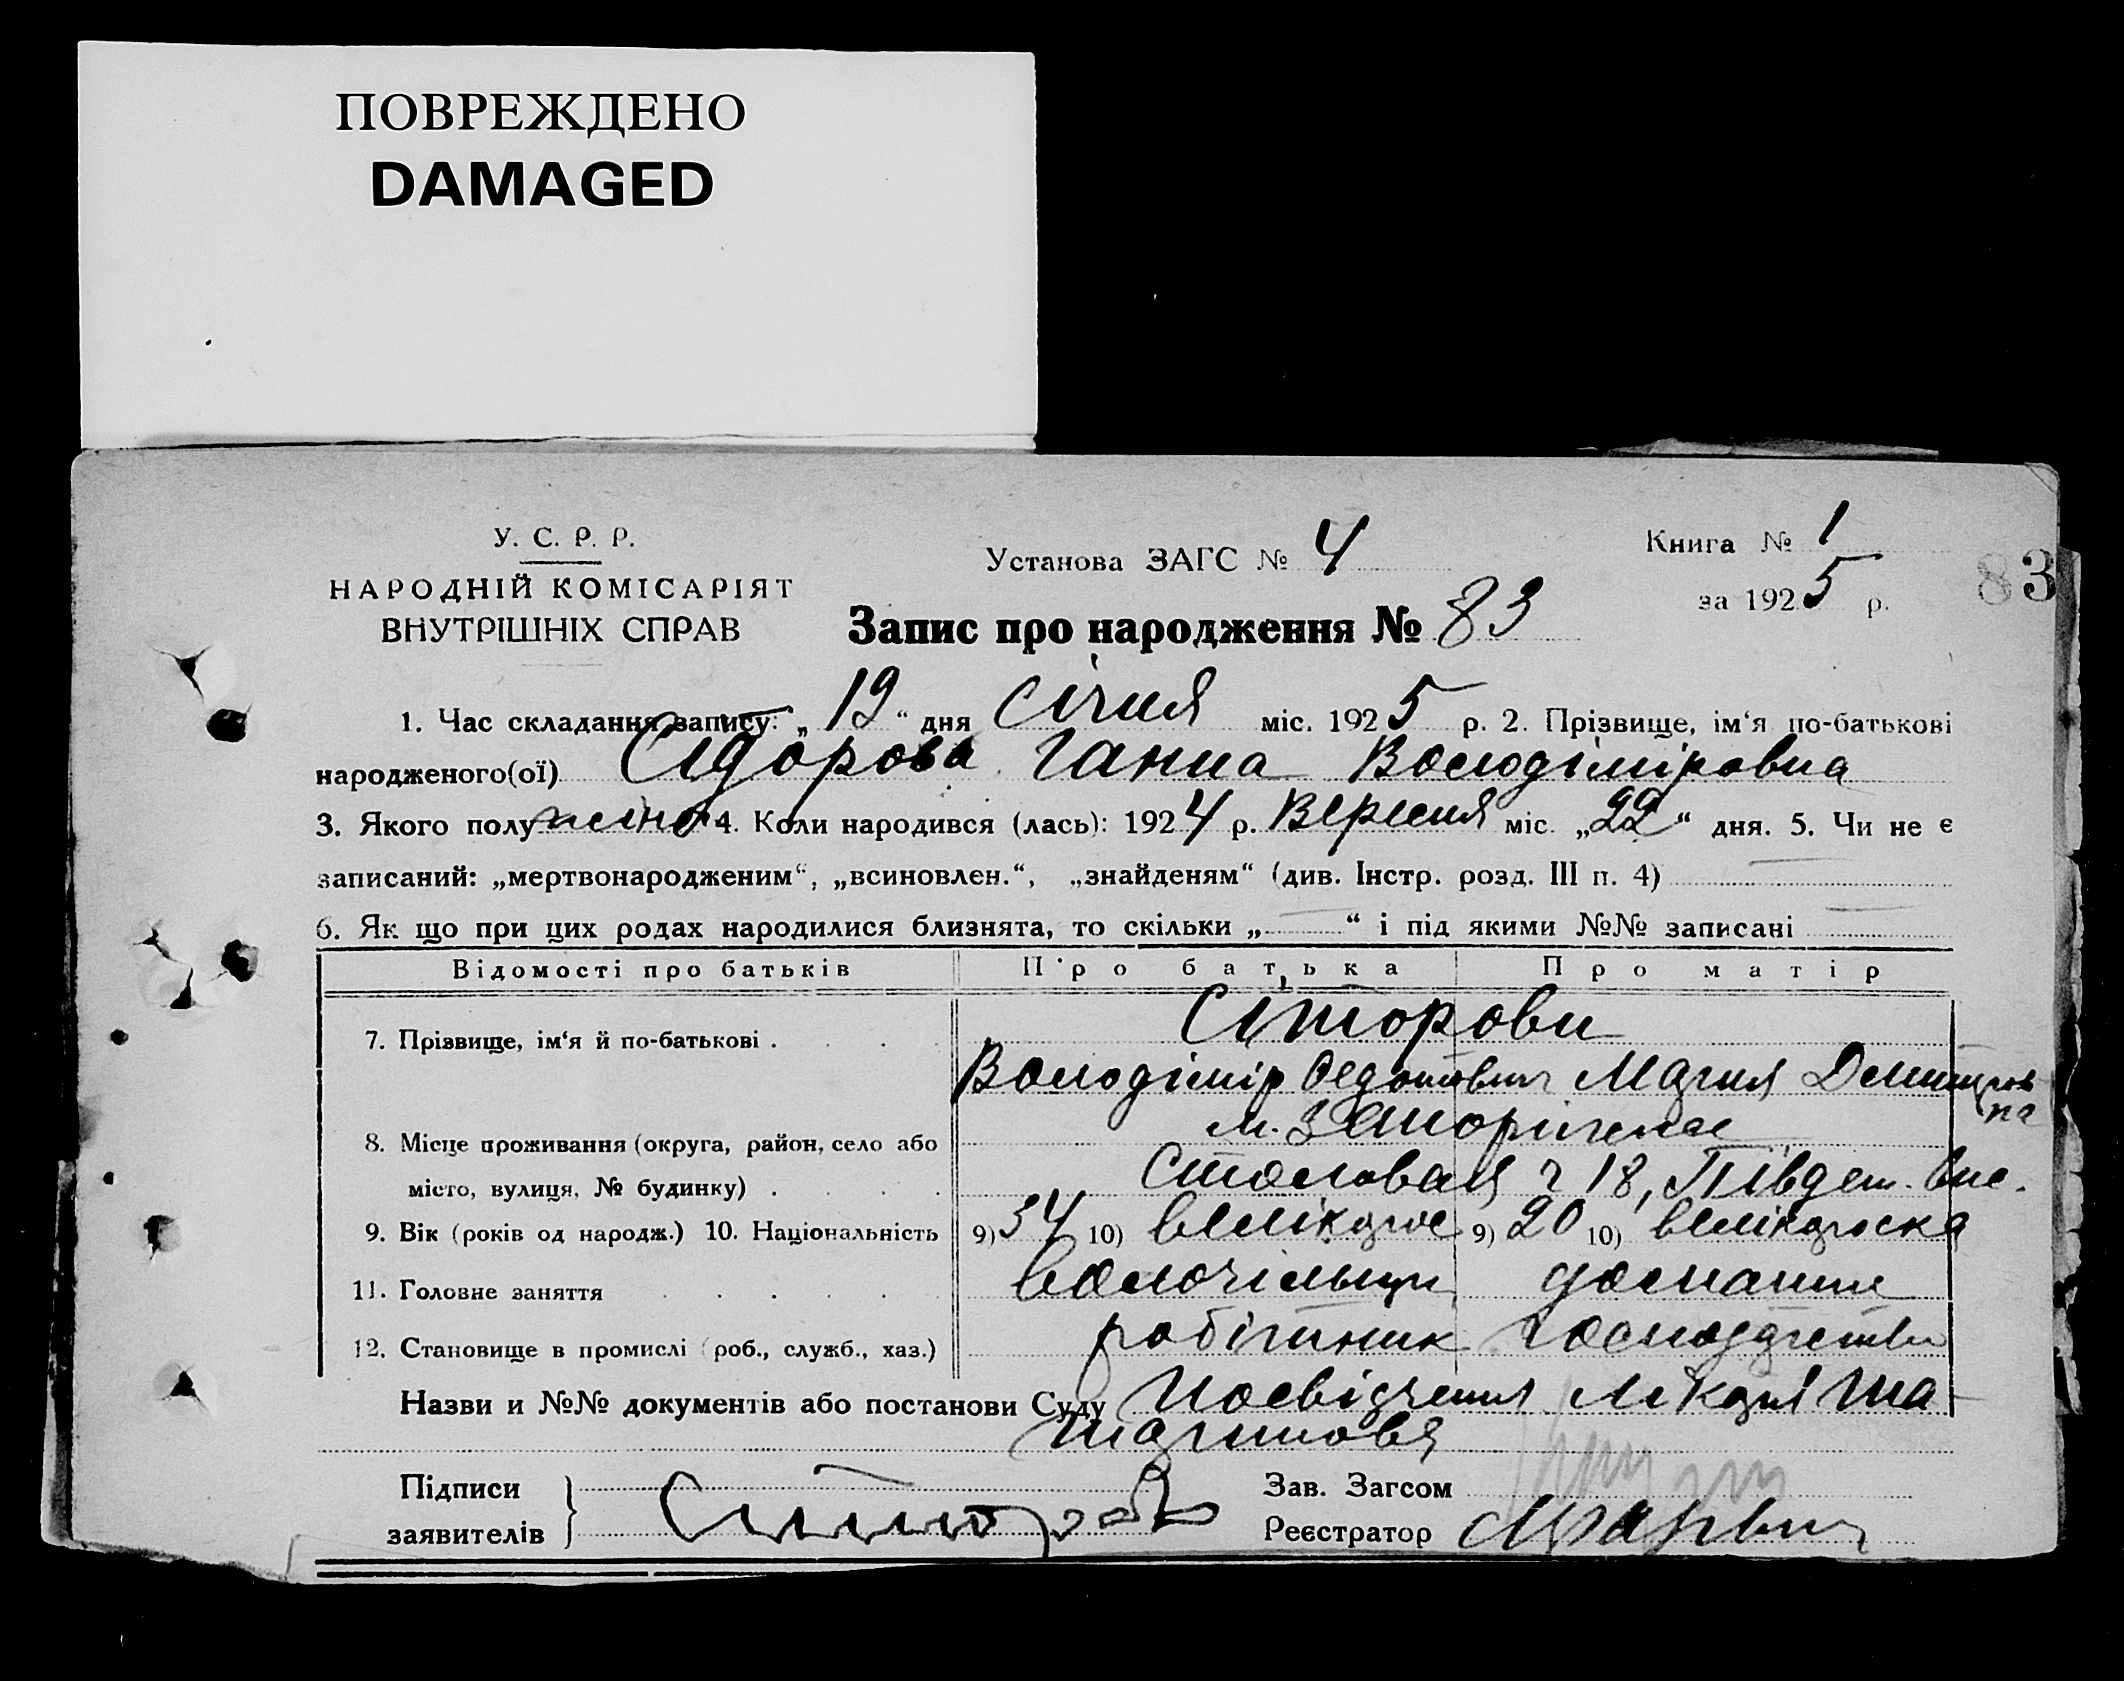 ПОВРЕЖДЕНО
DAMAGED
У. С. Р. Р.
НАРОДНІЙ КОМІСАРІЯТ
ВНУТРІШНІХ СПРАВ
Установа ЗАГС № 4
Книга № 1
за 1925 р.
83
Запис про народження № 83
1. Час складання запису: „19“ дня Січня міс. 1925 р. 2. Прізвище, ім‘я по-батькові
народженого(ої) Сідорова Ганна Володіміровна
3. Якого полу жіно 4. Коли народився (лась): 1924 р. Вересня міс. „22“ дня. 5. Чи не є
записаний: „мертвонародженим“, „всиновлен.“, „знайденям“ (див. Інстр. розд. III п. 4)
6. Як що при цих родах народилися близнята, то скільки „ “ і під якими №№ записані
Відомості про батьків Про батька Про матір
7. Прізвище, ім‘я й по-батькові
Володімір Федотович Марія Демитров
на
м. Запоріжжє
8. Місце проживання (округа, район, село або
місто, вулиця, № будинку) Столовая ч 18, Півден.
9. Вік (років од народж.) 10. Національність 9) 34 10) велікорос 9) 20 10) велікороска
11. Головне заняття домашнє
12. Становище в промислі (роб., служб., хаз.) робітник господарство
Назви и №№ документів або постанови Суду Посвідчення лікаря Ша-
Підписи
заявителів
Зав. Загсом
Реєстратор